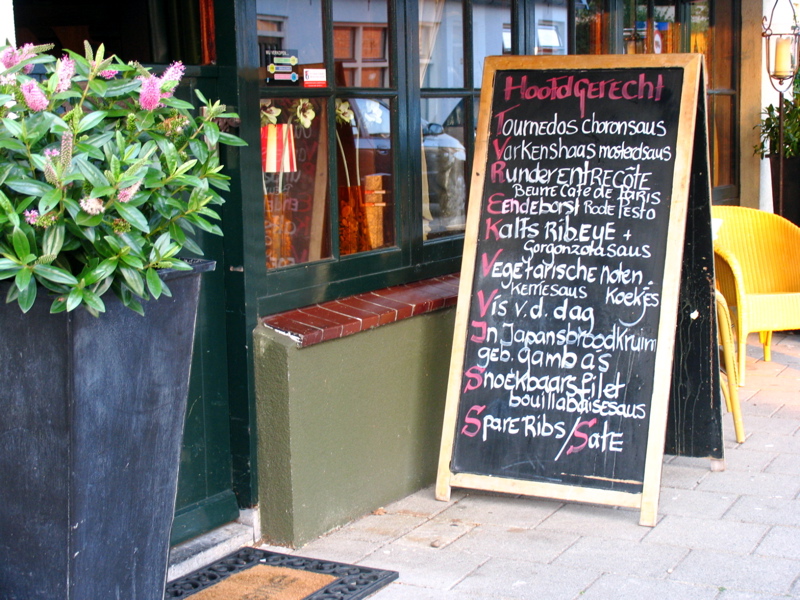 Hoofdgerecht
Tournedos choronsaus
Varkenshaas mosterdsaus
RunderENTRECÔTE
Beurre Café de Paris
Eendeborst Rode Pesto
Kalfs RibEyE +
Gorgonzolasaus
Vegetarische noten
Kerriesaus Koekjes
Vis v.d. dag
In Japansbroodkruim
geb. gamba's
Snoekbaarsfilet
bouillabaisesaus
Spare Ribs/Sate